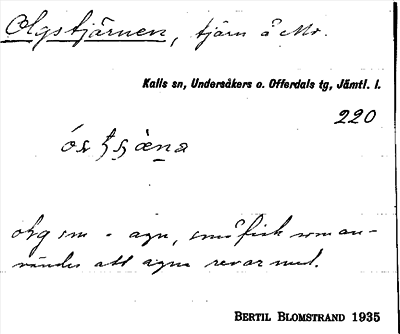 Olgstjärnen, tjärn å Mo.
Kalls sn, Undersåkers o. Offerdals tg, Jämtl. l.
220
olg sm = agn, småfisk som an-
vändes att agna revar med.
BERTIL BLOMSTRAND 1935